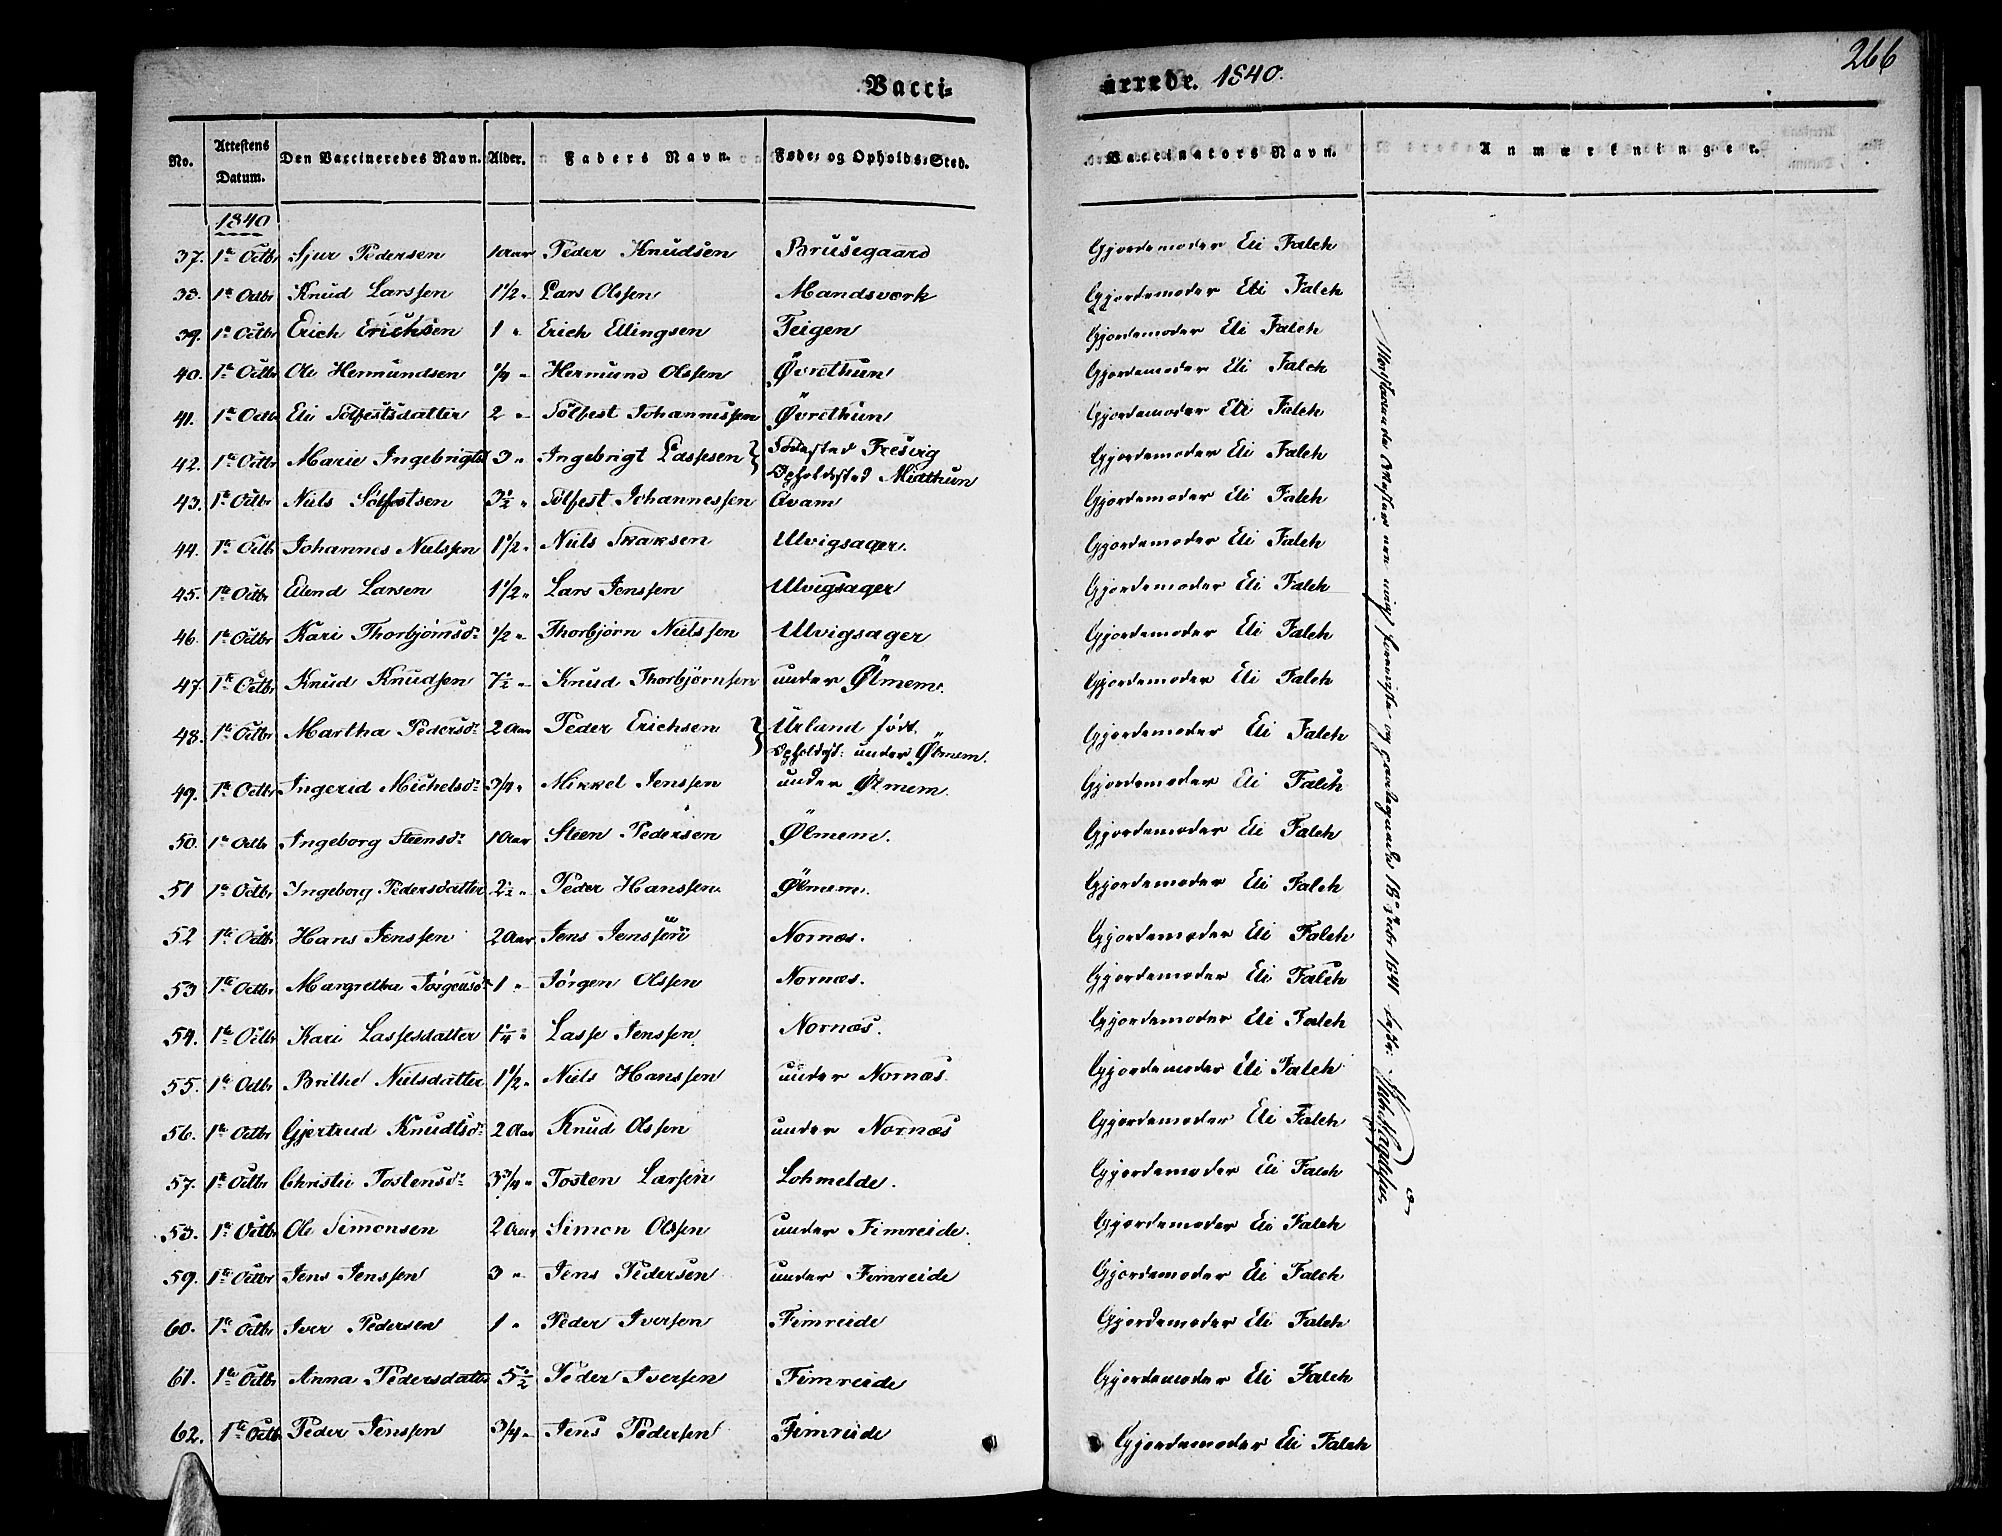 266
Vacci- nerede. 1840.
No. Attestens Datum. Den Vaccineredes Navn. Alder. Faders Navn. Føde- og Opholds-Sted. Vaccinators Navn. Anmærkninger.
1840
37. 1te Octbr Sjur Pedersen 1 Aar Peder Knudsen Brusegaard Gjordemoder Eli Falch
38. 1te Octbr Knud Larssen 1 1/2 " Lars Olssen Mandsværk Gjordemoder Eli Falch
39. 1te Octbr Erich Erichsen 1 " Erich Ellingsen Teigen Gjordemoder Eli Falch
40. 1te Octbr Ole Hermundsen 1/4 " Hermund Olssen Øvrethun Gjordemoder Eli Falch
41. 1te Octbr Eli Sølfestsdatter 2 " Sølfest Johannessen Øvrethun Gjordemoder Eli Falch
42. 1te Octbr Marie Ingebrigtsd 3 " Ingebrigt Lassesen } Fødested Fresvig Gjordemoder Eli Falch
Opholdssted Midthun
43. 1te Octbr Niels Sølfestsen 3 1/2 " Sølfest Johannessen Qvam Gjordemoder Eli Falch
44. 1te Octbr Johannes Nielssen 1 1/2 " Niels Skaksen Ulvigsager. Gjordemoder Eli Falch
45. 1te Octbr Elend Larsen 1 1/2 " Lars Jenssen Ulvigsager Gjordemoder Eli Falch
46. 1te Octbr Kari Thorbjørnsdr 1/2 " Thorbjørn Nielssen Ulvigsager Gjordemoder Eli Falch
47. 1te Octbr Knud Knudsen 7 1/2 " Knud Thorbjørnsen under Ølmem. Gjordemoder Eli Falch
48. 1te Octbr Martha Pedersdr 2 Aar Peder Erichsen } Urland født. Gjordemoder Eli Falch
Opholdsst: under Ølmem.
49. 1te Octbr Ingerid Michelsdr 3/4 " Mikkel Jenssen under Ølmem. Gjordemoder Eli Falch
50. 1te Octbr Ingeborg Steensdr 1 Aar Steen Pedersen Ølmem. Gjordemoder Eli Falch
51 1te Octbr Ingeborg Pedersdatter 2 1/2 " Peder Hanssen Ølmem. Gjordemoder Eli Falch
52 1te Octbr Hans Jenssen 2 Aar Jens Jenssen Nornæs. Gjordemoder Eli Falch
53 1te Octbr Margrethe Jørgensdr 1 " Jørgen Olssen Nornæs. Gjordemoder Eli Falch
54. 1te Octbr Kari Lassesdatter 1 1/4 " Lasse Jenssen Nornæs. Gjordemoder Eli Falch
55. 1te Octbr Brithe Nielsdatter 1 1/2 " Niels Hanssen under Nornæs. Gjordemoder Eli Falch
56. 1te Octbr Gjertrud Knudtsdr 2 Aar Knud Olssen under Nornæs Gjordemoder Eli Falch
57. 1te Octbr Christie Tostensdr 3/4 " Tosten Larsen Lohmelde. Gjordemoder Eli Falch
58. 1te Octbr Ole Simonsen 2 Aar Simon Olssen under Fimreide. Gjordemoder Eli Falch
59. 1te Octbr Jens Jenssen 3 " Jens Pedersen under Fimreide Gjordemoder Eli Falch
60. 1te Octbr Iver Pedersen 1 " Peder Iversen Fimreide Gjordemoder Eli Falch
61. 1te Octbr Anna Pedersdatter 5 1/2 " Peder Iversen Fimreide Gjordemoder Eli Falch
62. 1te Octbr Peder Jenssen 3/4 " Jens Pedersen Fimreide Gjordemoder Eli Falch
1841